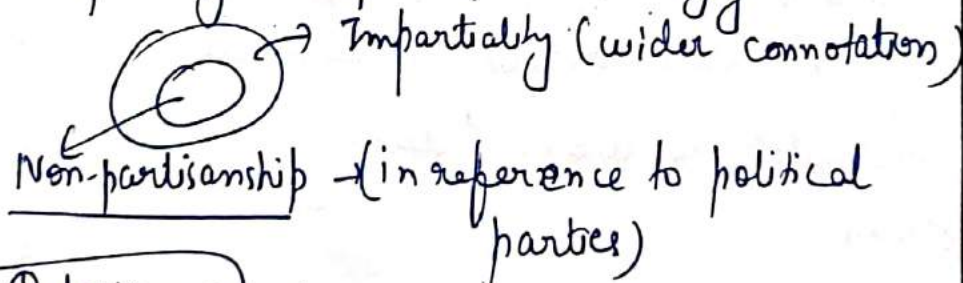 → Impartiality (wider connotation)
Non-partisanship → (in reference to political
parties)